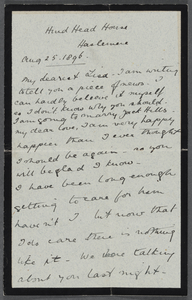 Hind Head House
Haslemere
Aug 25. 1896.
My dearest Vi͏olet. I am writing
to tell you a piece of news - I
can hardly believe it myself
so I don't know why you should.
I am going to marry Jack Hills
my dear love, I am very happy
happier than I ever thought
I should be again - so you
will be glad I know.
I have been long enough
getting to care for him
haven't I but now that
I do care there is nothing
like it - We were talking
about you last night -